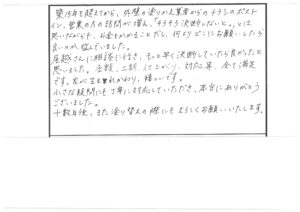 築15年を超えてから、外壁の塗りかえ業者からのチラシのポスト
イン、営業の方の訪問が増え、「そろそろ決断しないと。」とは
思いながらも、お金もかかることだし、何よりどこにお願いしたら
良いのか、悩んでいました。
尾越さんに相談に行き、もっと早く決断していたら良かったと
思いました。金額、工期、仕上がり、対応等、全て満足
です。家が生まれかわり、嬉しいです。
小さな疑問にも丁寧に対応していただき、本当にありがとう
ございました。
十数年後、また塗り替えの際にもよろしくお願いいたします。